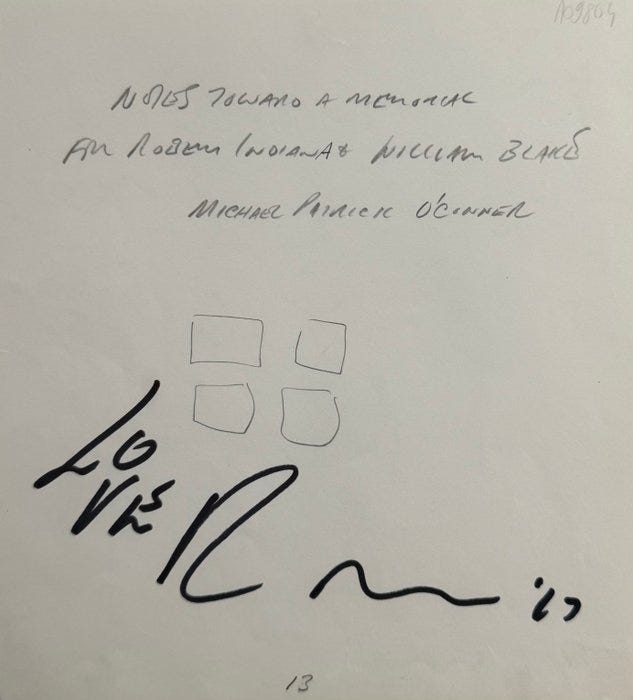 A09804
NOTES TOWARD A MEMORIAL
FOR ROBERT INDIANA & WILLIAM BLAKE
MICHAEL PATRICK O'CONNER
LO
VE R '17
13